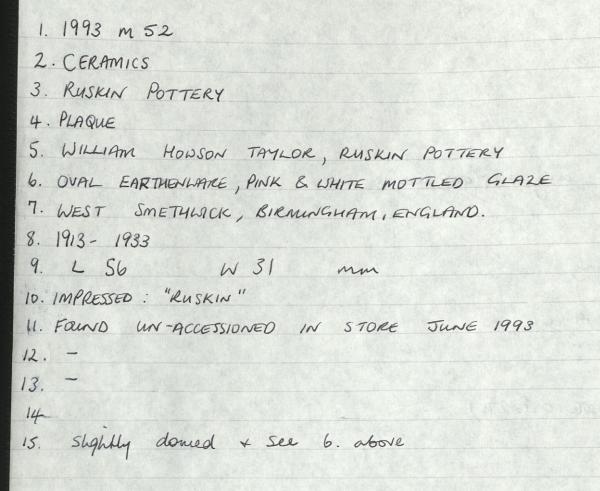 1. 1993 M 52
2. CERAMICS
3. RUSKIN POTTERY
4. PLAQUE
5. WILLIAM HOWSON TAYLOR, RUSKIN POTTERY
6. OVAL EARTHENWARE, PINK & WHITE MOTTLED GLAZE
7. WEST SMETHWICK, BIRMINGHAM, ENGLAND.
8. 1913 - 1933
9. L 56 W 31 mm
10. IMPRESSED : "RUSKIN"
11. FOUND UN-ACCESSIONED IN STORE JUNE 1993
12. -
13. -
14
15. slightly domed & see 6. above